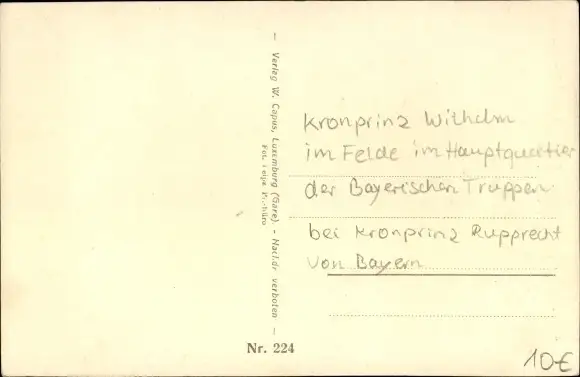 — Verlag W. Capus, Luxemburg (Gare) — Nachdr. verboten —
Nr. 224
Kronprinz Wilhelm
im Felde im Hauptquatier
der Bayerischen Truppen
bei Kronprinz Rupprecht
von Bayern
10€